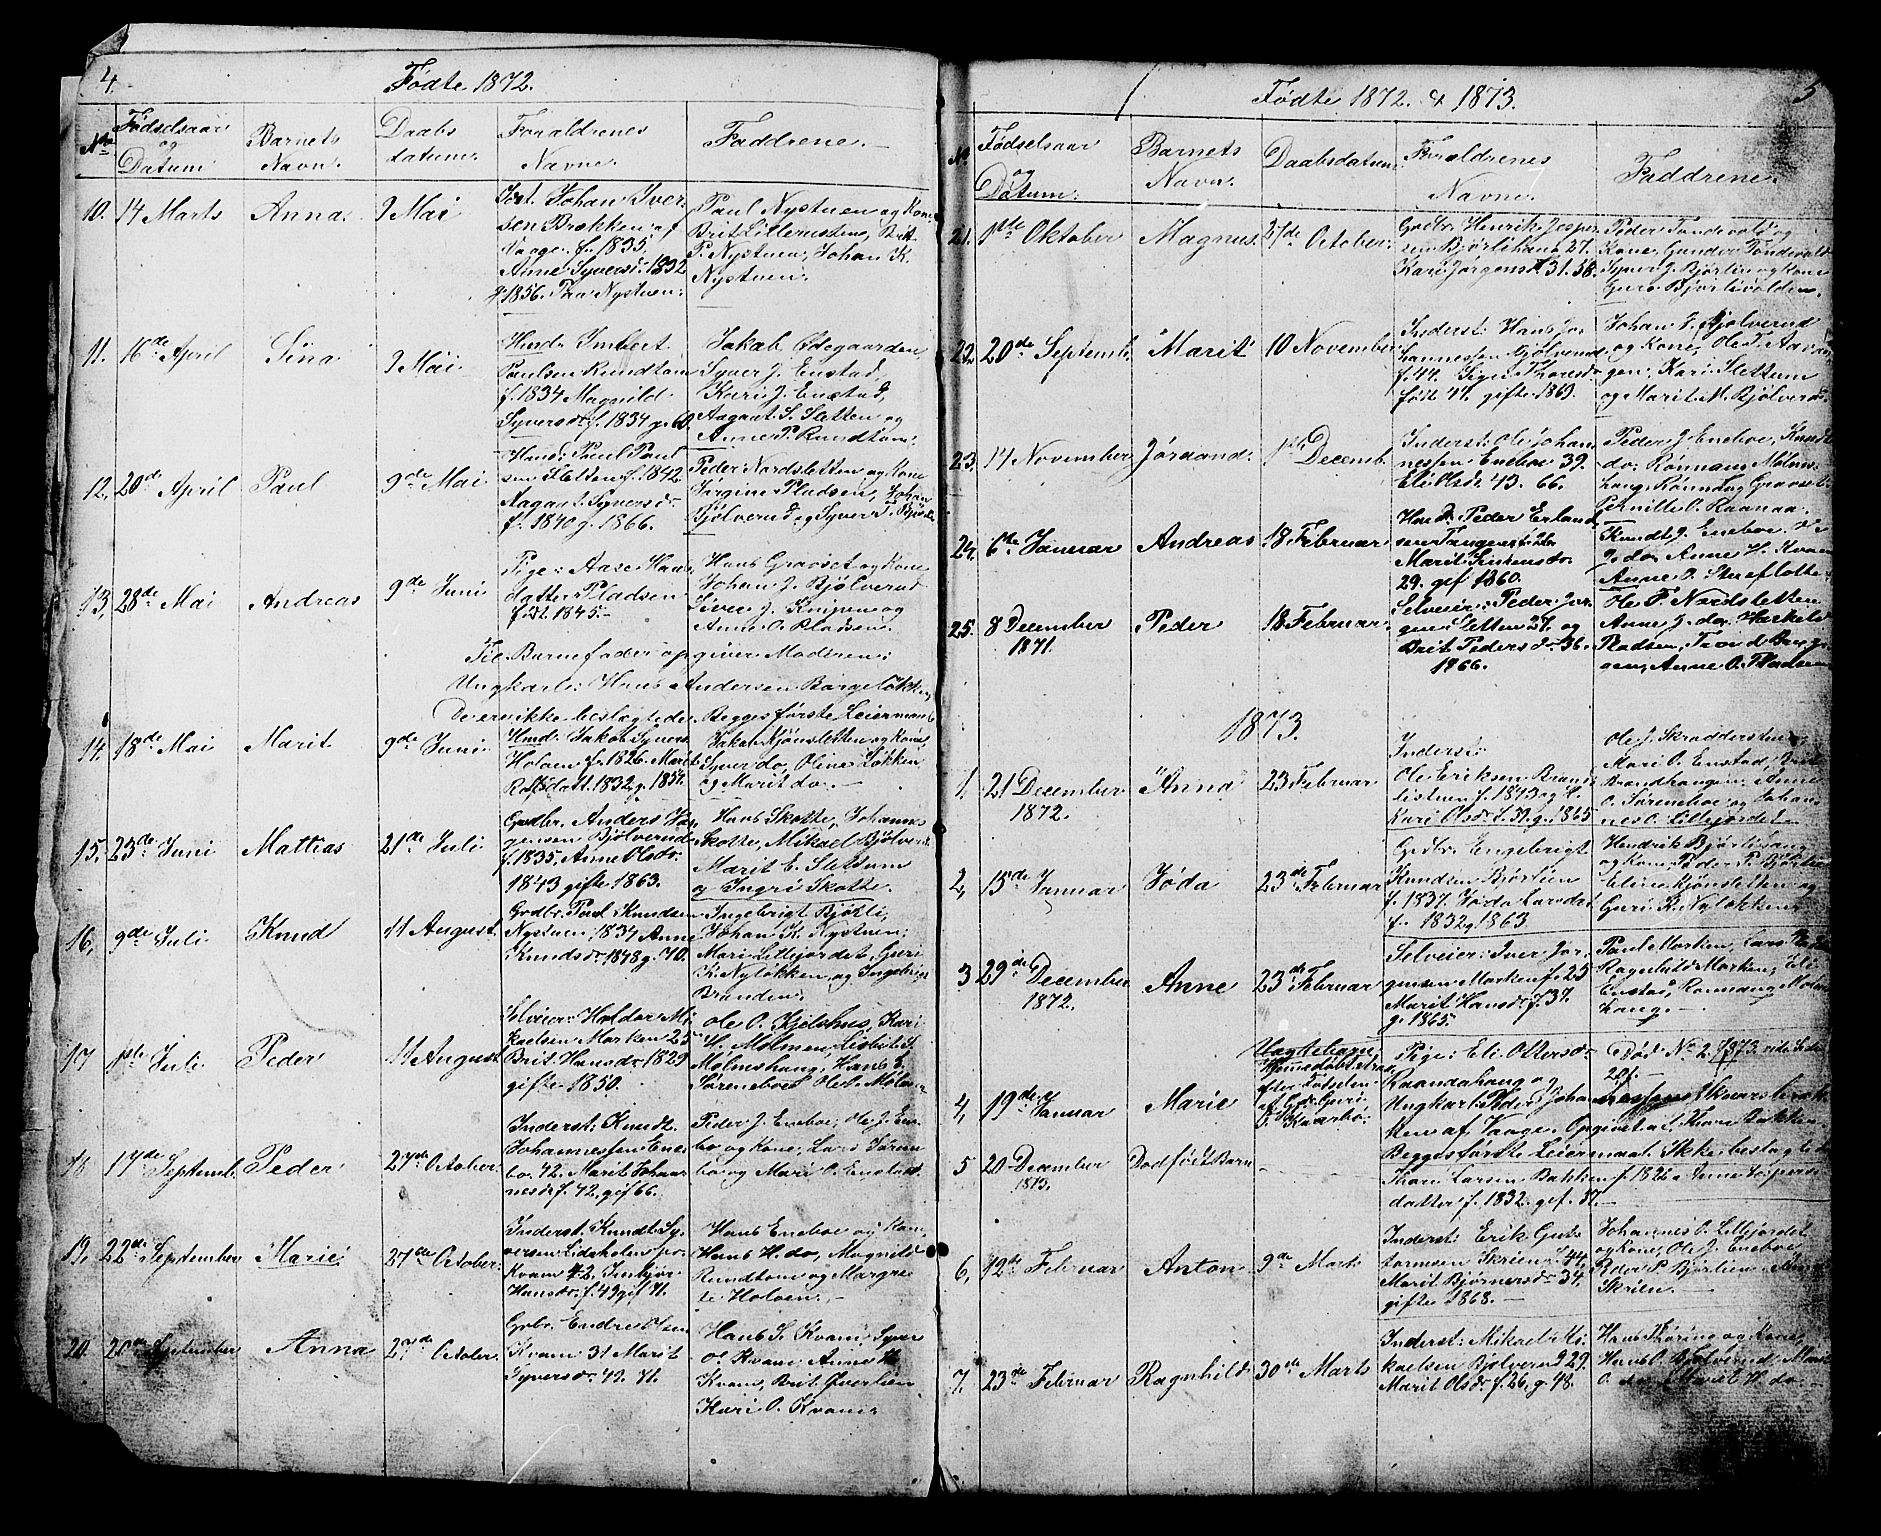 4.
Fødte 1872.
No
Fødselsaar
og
Datum
Barnets
Navn.
Daabs
datum.
Foraldrenes
Navne.
Faddrene.
10. 14 Marts
Anna.
9 Mai
Inst. Johan Iver
sen Brækken af
Vaage f. 1835.
Anne Syversd. 1832
g 1856. Paa Nystuen.
Paul Nystuen og Kone
Brit Lillerusten, Brit
P. Nystuen, Johan K.
Nystuen.
11. 16de April
Sina
9 Mai
Hmd. Imbert
Paulsen Rundtom
f. 1834 Magnild
Syversdr f. 1834 g. 60.
Jakob Ødegaarden
Syver J. Enstad,
Kari J. Enstad,
Aagaat S. Sletten og
Anne P. Rundtom.
12. 20de April
Paul
9de Mai
Hmd. Paul Paul
sen Sletten f. 1842
Aagaat Syversdr
f. 1840 g. 1866.
Peder Nordsletten og Kone
Jørgine Pladsen, Johan
Bjølverud og Syver
13, 28de Mai
Andreas
9de Juni
Pige: Aase Hans
datter Pladsen
født 1845.
Hans Gravset og Kone
Johan J. Bjølverud
Siver J. Knipen og
Anne O. Pladsen.
Til Barnefader opgiver Moderen:
Ungkarl: Hans Andersen Borgeløkken,
De er ikke beslægtede. Begges første Leiermaal
14. 18de Mai
Marit
9de Juni
Hmd: Jakob Syvers
Holaen f. 1826. Marit
Rolfsdatt. 1832 g. 1852.
Jakob Kjønsletten og Kone,
Syver do, Oline Løkken
og Marit do.
15. 23de Juni
Mattias
21de Juli
Grdbr. Anders Jør
gensen Bjølverud
f. 1835, Anne Olsdr.
1843 gifte 1863.
Hans Skotte, Johannes
Skotte, Mikael Bjølverud
Marit E. Slettum
og Ingri Skotte.
16, 9de Juli
Knud
11 August.
Grdbr. Paul Knudsen
Nystuen, 1834 Anne
Knudsdr. 1848 g. 70.
Ingebrigt Bjøkli,
Johan K. Nystuen;
Mari Lillejordet, Guri
K. Nyløkken, og Ingebrigt
Branden.
17 1ste Juli
Peder
11 August
Selveier: Haldor Mi
kaelsen Marken 25
Brit Hansdr. 1829
gifte 1850.
Ole O. Kjelshus, Kari
H. Mølmen, Lisbit S.
Molmshaug, Hans E.
Sørenboe, Ole
18 17de Septemb.
Peder
27de October.
Inderst: Knudt
Johannessen Ene
bo. 42. Marit Johan
nesdr f. 42, gif 66.
Peder J. Eneboe, Ole J. Ene
bo og Kone, Lars Søren
bo og Mari O. Enstad.
19, 22de September
Marie
27de October.
Inderst. Knudt Sy
versen Lidskolen
Kvam 42. Imbjør
Hansdr. f. 49 gif 71.
Hans Eneboe og Kone,
Hans H. do, Magnild
Rundtom og Margre
te Holaen.
20. 20de September
Anna
27de October.
Grbr. Endre Olsen
Kvam 31 Marit
Syversdr 42. 71.
Hans S. Kvam, Syver
O. Kvam, Anne H.
Kvam, Brit Øverlien
Kari O. Kvam.
5
Fødte 1872. & 1873.
No
Fødselsaar
og
Datum.
Barnets
Navn.
Daabsdatum.
Foraldrenes
Navne.
Faddrene.
21. 1ste Oktober
Magnus.
27de October.
Grdbr. Henrik Jesper
sen Bjørlihaug 27.
Kari Jørgensd. 31. 58.
Peder Tondevold og
Kone, Gunder Tondevold
Syver J. Bjørlien og Kone
Guro Bjørlivolden.
22. 20de Septemb.
Marit
10 November
Inderst: Hans Jo
hannessen Bjølverud
f. 44. Sigri Thoresdr
født 44. gifte 1869.
Johan J. Bjølverud
og Kone, Ole T. Aavan
gen, Kari Slettum
og Marit M. Bjølverud.
23. 14 November
Jørgand.
1ste Decemb.
Inderst: Ole Johan
nessen Eneboe 39.
Eli Olsdr 43. 66.
Peder J. Eneboe, Knudt
do, Rønnaug Molms
haug, Rønnaug Gravset
Pernille O. Raanaa.
24. 6te Januar
Andreas
18 Februar
Peder Erland
sen Tangensti
Marit
29. gif 1860.
Knudt J. Eneboe, Ole
J. do, Anne H. Kvam
Anne O. Storeflotte
25. 8 December
1871.
Peder
18 Februar.
Selveier: Peder Jør
gensen Sletten 27. og
Brit Pedersdr. 36.
1866.
Ole P. Nordsletten
Anne J. do,
Pladsen, Trond
gen, Anne O. Pladsen
1873.
1. 21 December
1872.
"Anna"
23 Februar
Inderst:
Ole Eriksen Bran
listuen f. 1843 og H.
Kari Olsdr. f. 39. g. 1865
Ole J. Skraddersteen
Mari O. Enstad, Brit
Brandhaugen, Anne
O. Sørenboe og Johan
nes O. Lillejordet.
2, 15de Januar
Jøda
23de Februar
Grdbr. Engebrigt
Knudsen Bjørlien
f. 1837. Jøda Larsdat
f. 1832 g. 1863.
Hendrik Bjørlihaug
og Kone, Peder P. Bjørlien
Eline Kjønsletten og
Guri K. Nyløkken.
3 29de December
1872.
Anne
23de Februar
Selveier: Iver Jør
gensen Marken f. 25
Marit Hansdr. f. 37.
g. 1865.
Paul Marken, Lars
Ragnhild Marken, Eli
Enstad, Rønnaug Molms
haug.
4, 19de Januar
Marie
Hjemmedøbt strax
efter Fødselen
af Guri
Kaarbø.
Pige: Eli Ottersdr
Raandahaug og
Ungkarl: Peder Johan
ken af Vaage. Opgivet af Thore Bakken.
Begges første Leiermaal. Ikke beslægtet.
Død No 2, 1873. vide Side
201.
5 20 December
1873.
Dødfødt Barn
Thore Larsen Bakken f. 1826. Anne Jespers
datter f. 1832. gif. 57.
6, 12te Februar
Anton
9de Marts
Inderst: Erik Gut
tormsen Skrien f. 44,
Marit Bjørnersdr 34,
gifte 1868.
Johannes O. Lillejordet
og Kone, Ole J. Eneboe
Peder P. Bjørlien, Anne
Skrien.
7. 23de Februar
Ragnhild
30de Marts
Inderst: Mikael Mi
kaelsen Bjølverud 29.
Marit Olsdr. f. 26, g. 48.
Hans Thoring og Kone,
Hans O. Bjølverud, Marit
O. do, Marit H. do.